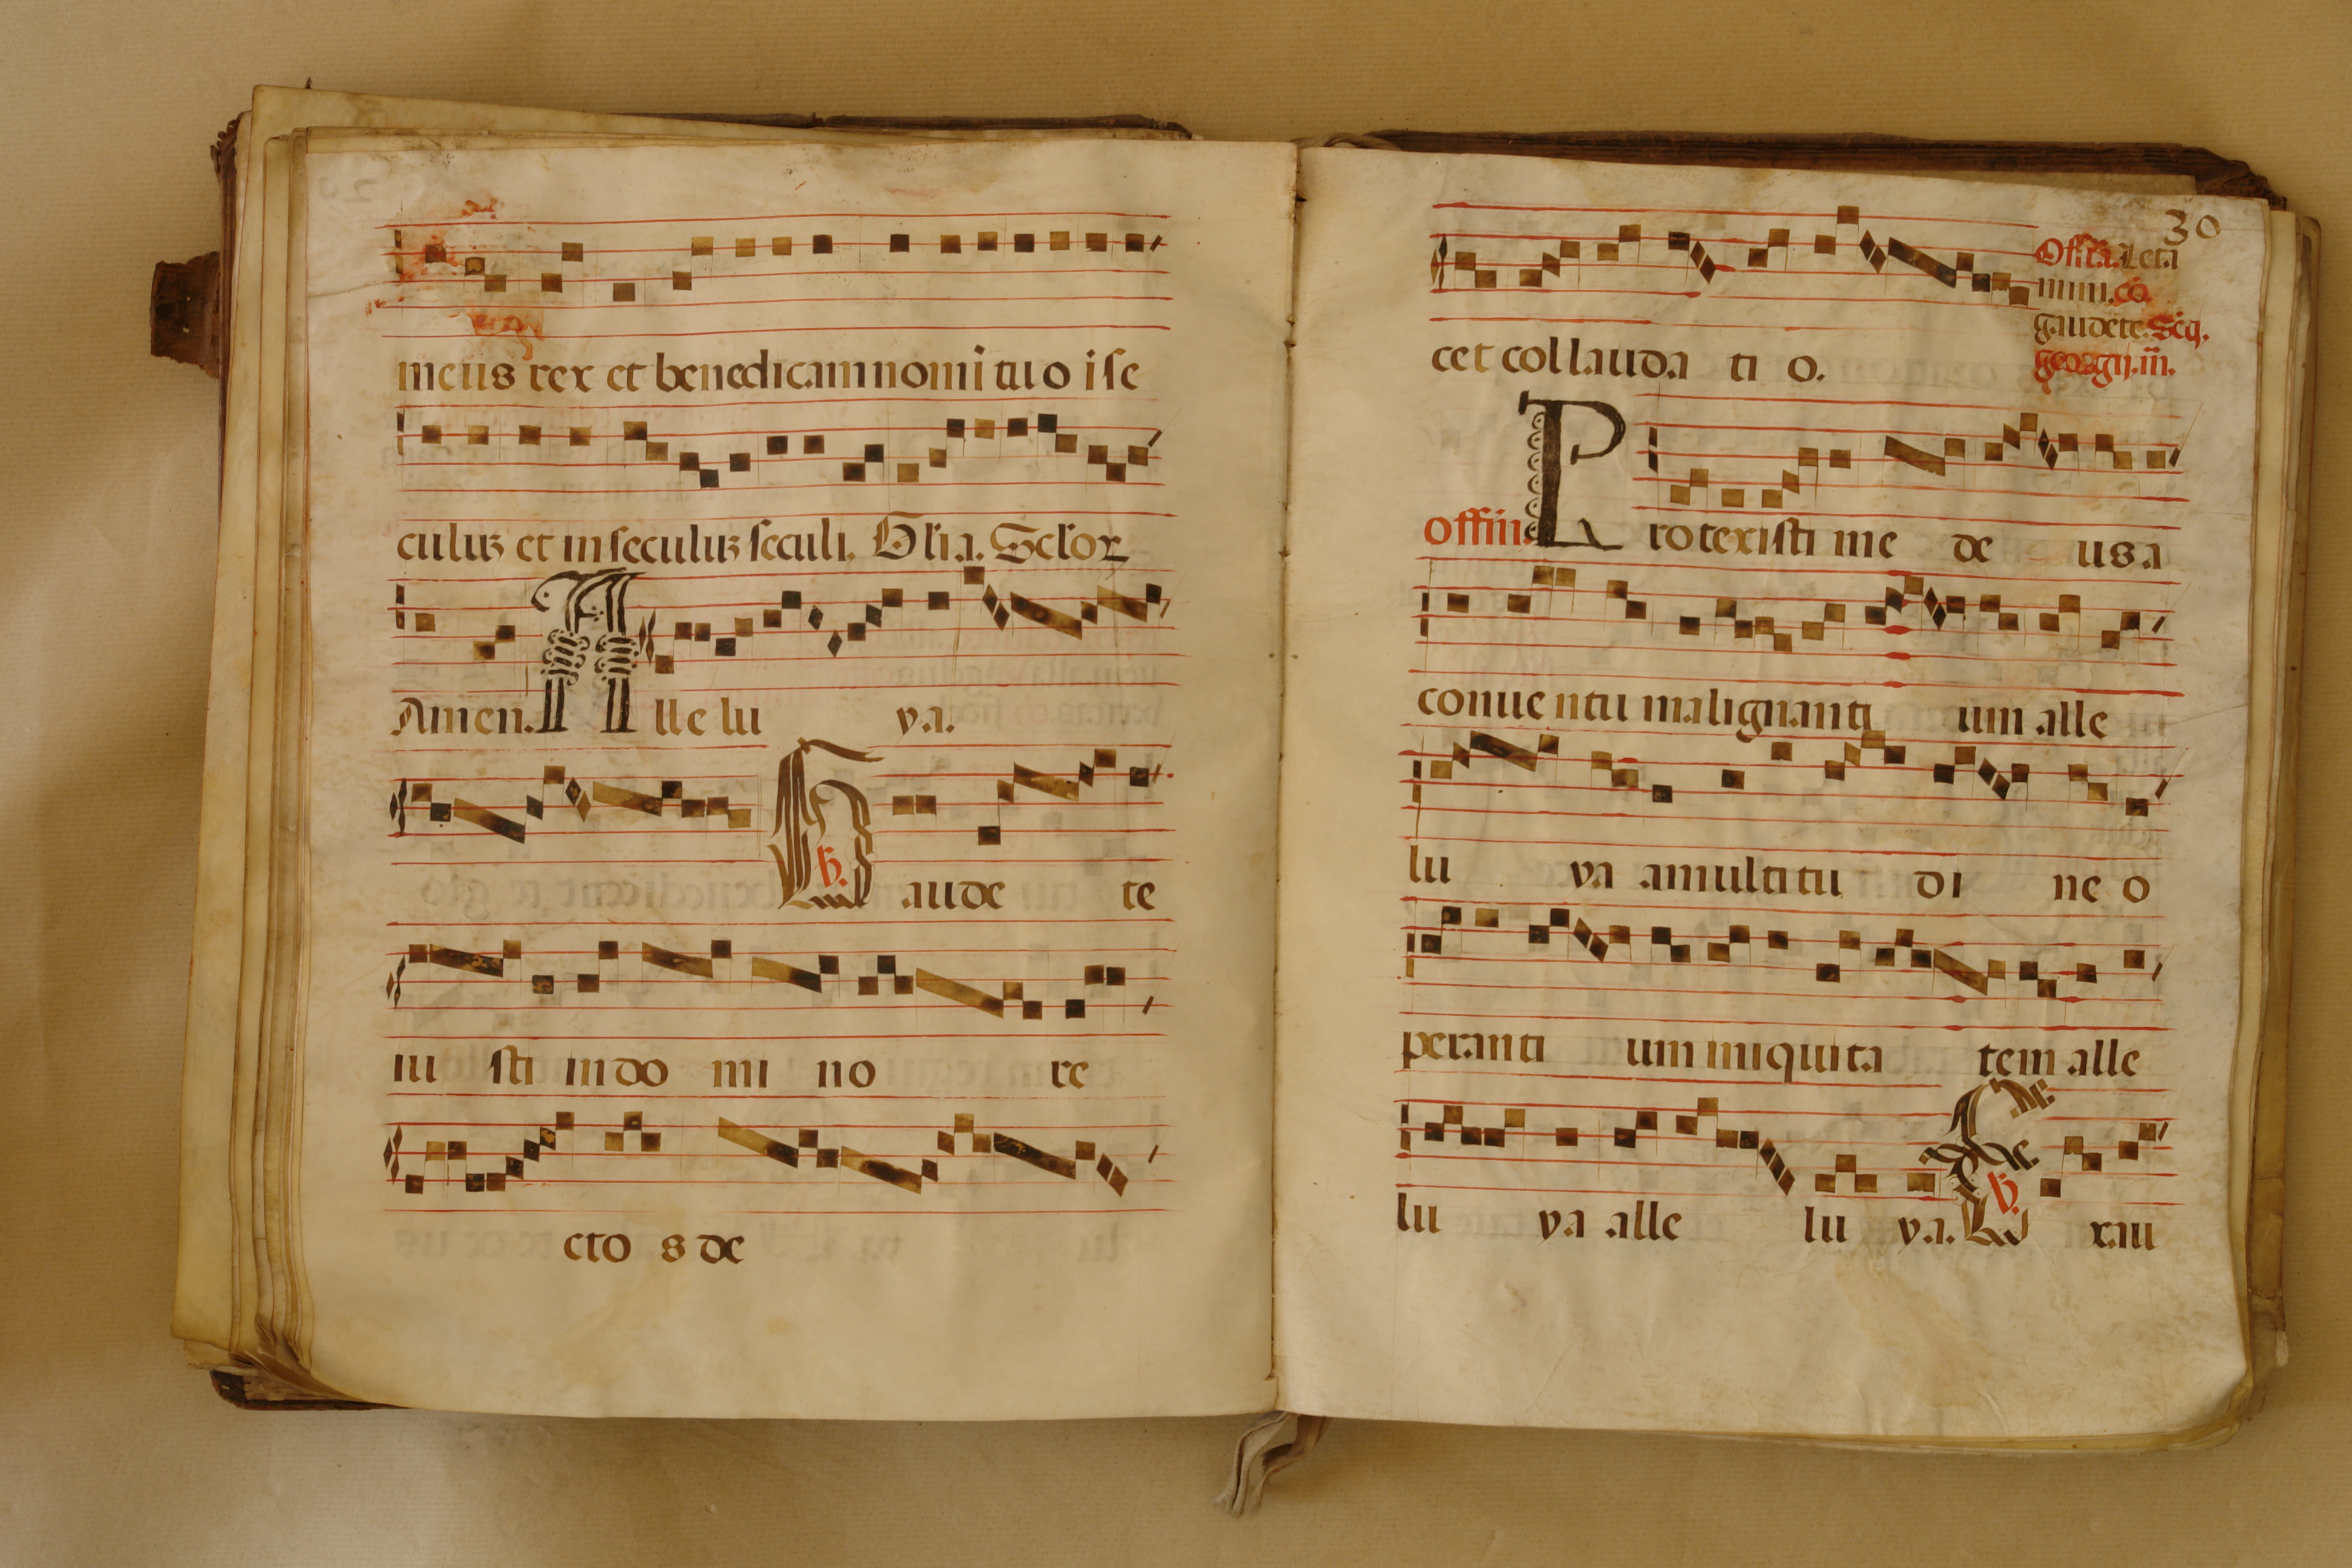 meus rex et benedicam nomi tuo i se
culuꝫ et in seculuꝫ seculi. Gl'ia. Sclor
Amen. A lle lu ya.
℣. G aude te
iu sti in do mi no re
cto s de
30
cet collauda ti o.
Off'ra. Leta
mini. cō.
gaudete. Scī.
georgij. m̄.
offm̄. P rotexisti me de us a
conue ntu malignanti um alle
lu ya a multitu di ne o
peranti um iniquita tem alle
lu ya alle lu ya. ℣. E xau